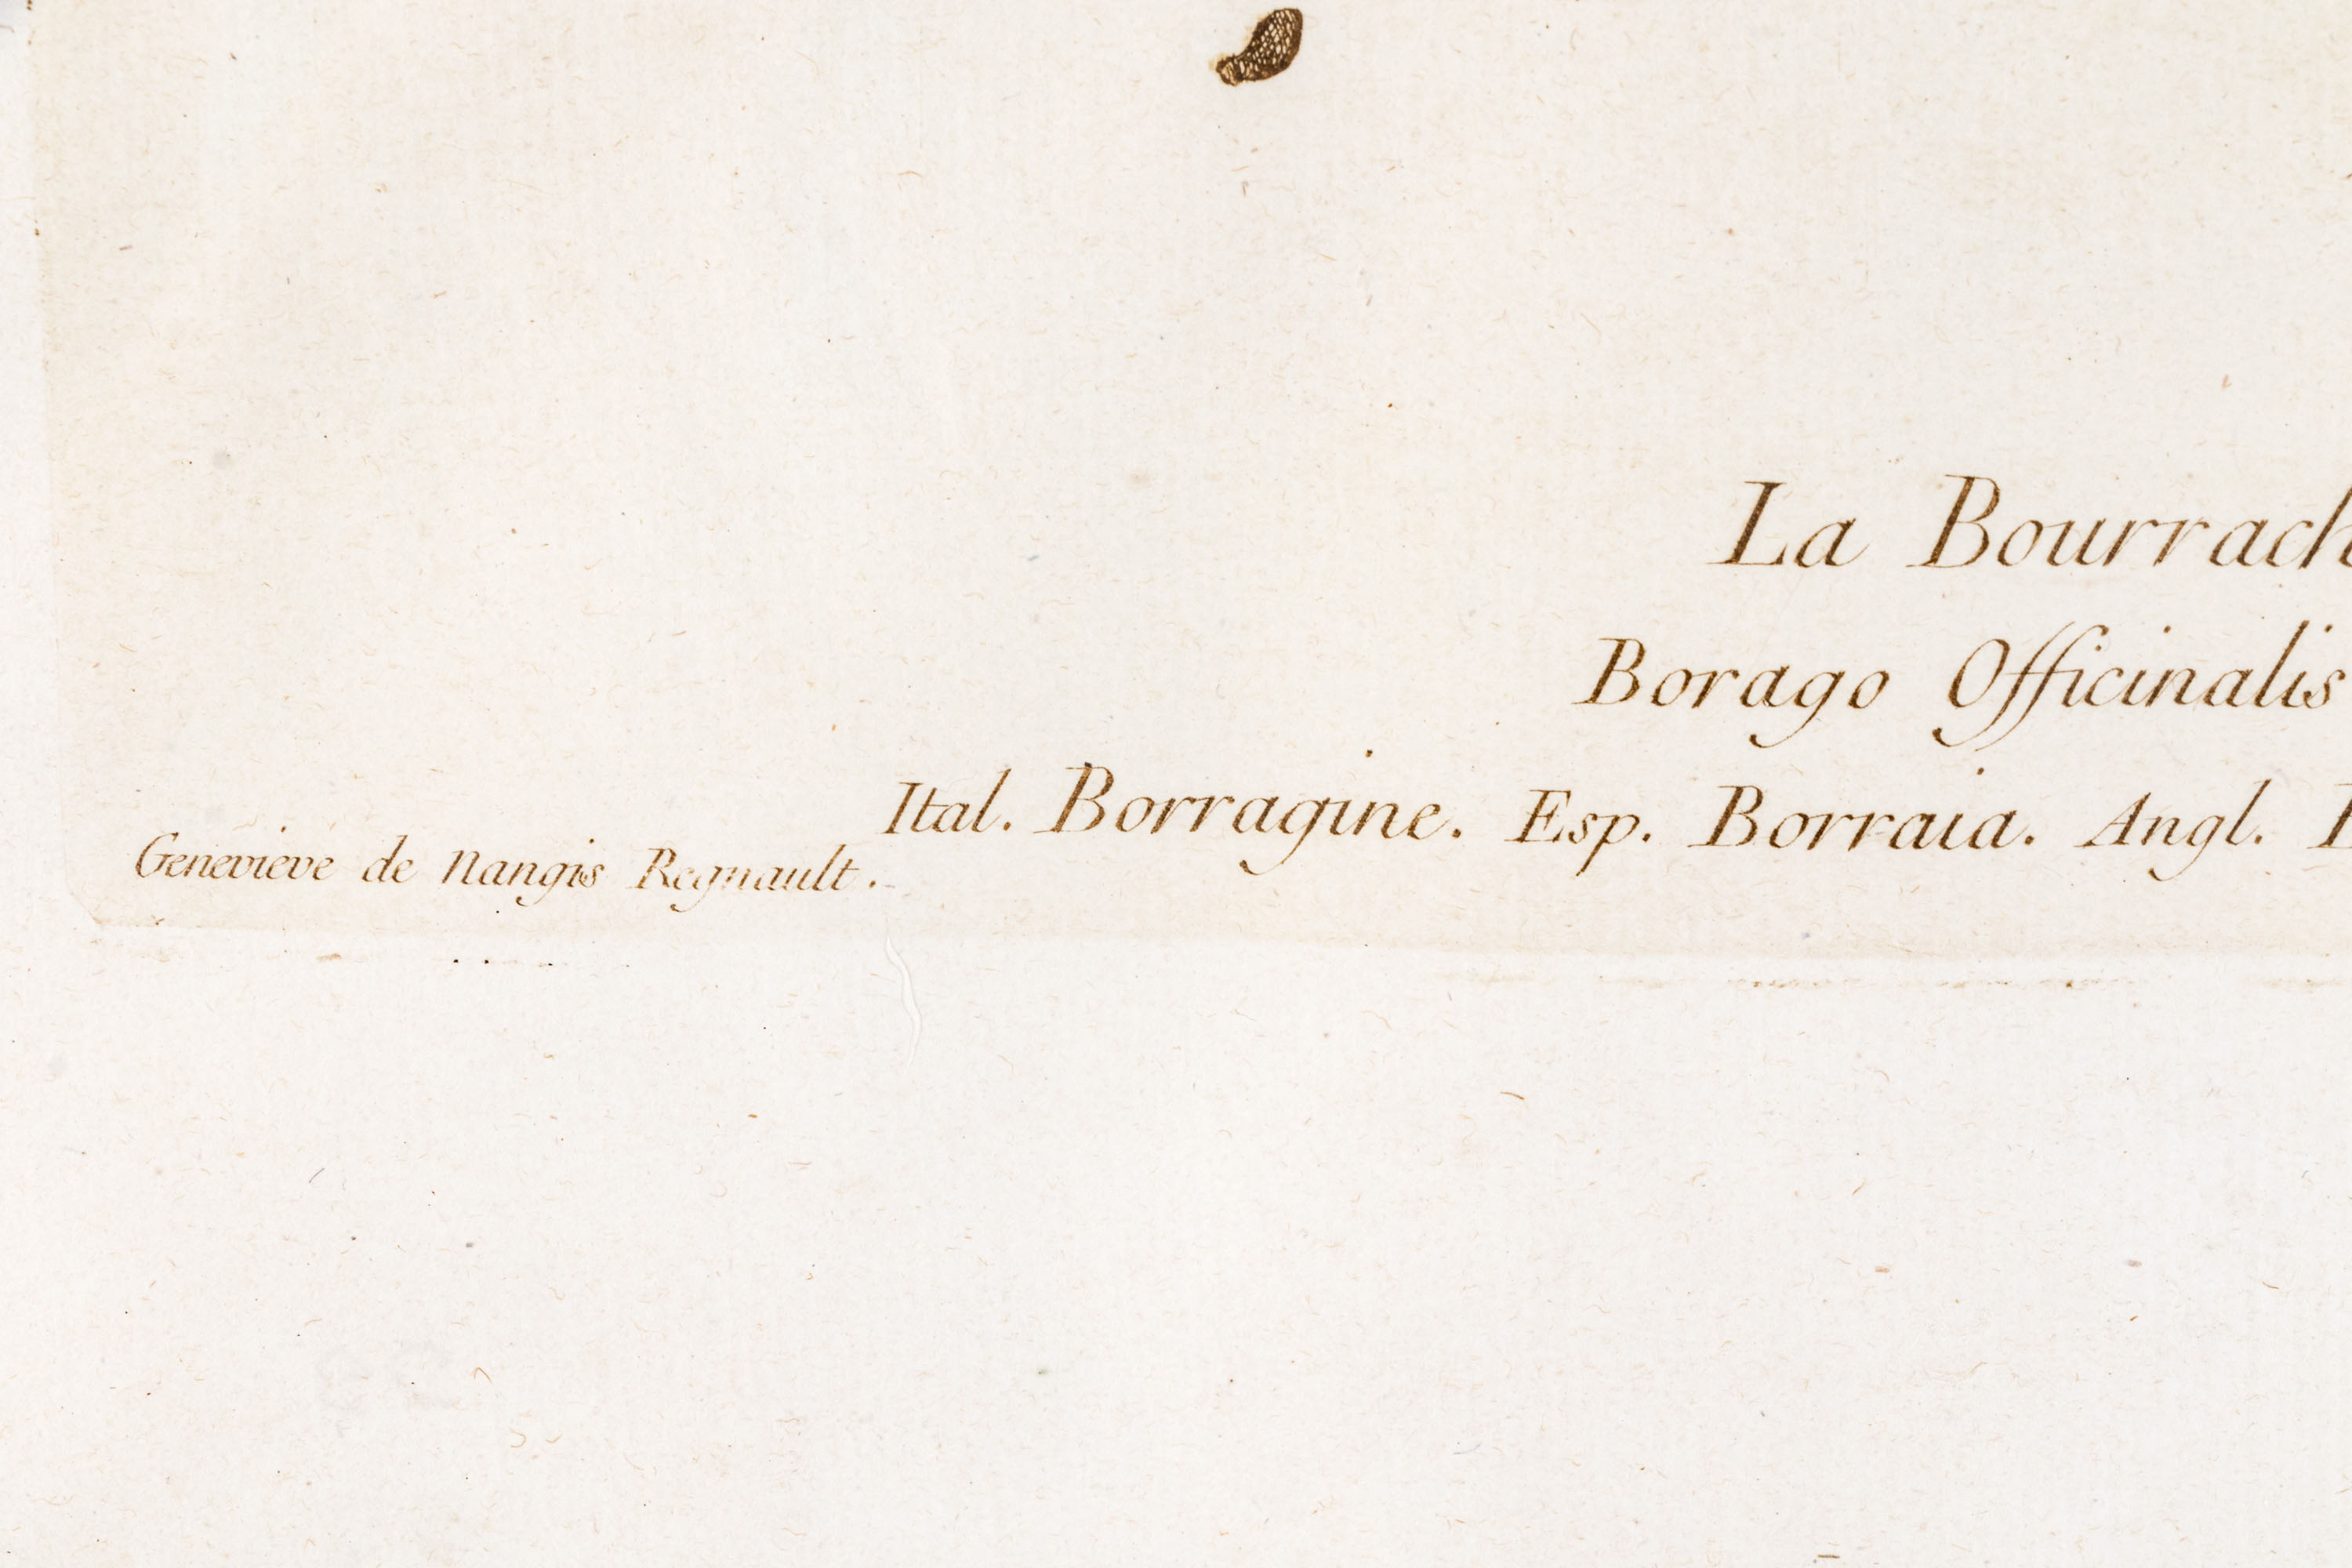 La Bourrach
Borago Officinalis
Ital. Borragine. Esp. Borraia. Angl.
Genevieve de Nangis Regnault.